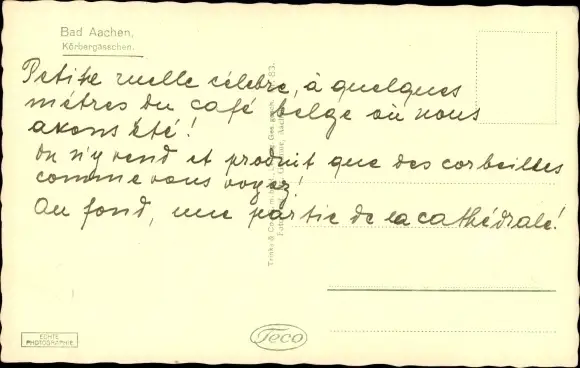 Bad Aachen,
Körbergässchen.
Petite ruelle célèbre, à quelques
mètres du café belge où nous
avons été!
On n'y vend et produit que des corbeilles
comme vous voyez!
Au fond, une partie de la cathédrale!
83.
ECHTE
PHOTOGRAPHIE
Teco